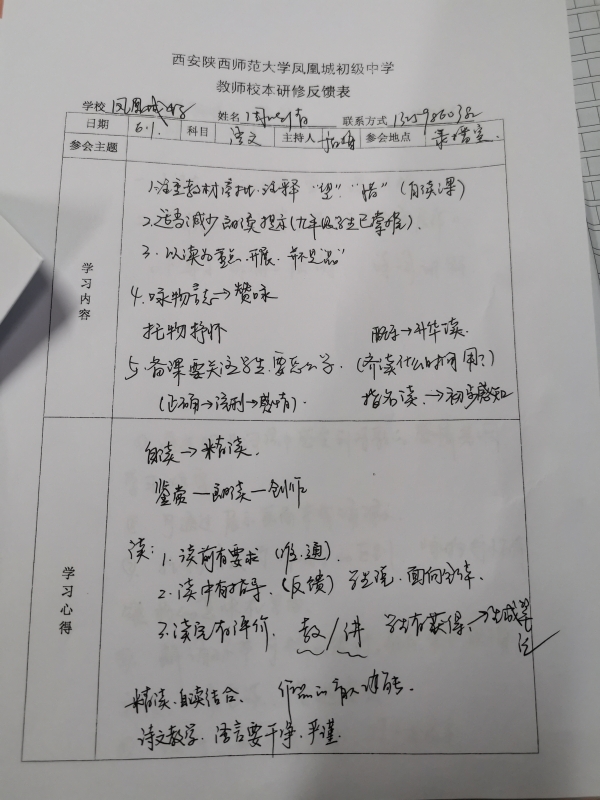 西安陕西师范大学凤凰城初级中学
教师校本研修反馈表
学校 凤凰城中学 姓名 联系方式
日期 6.1. 科目 语文 主持人 参会地点 录播室.
参会主题
学习内容
1.注重教材 注释 "望" "惜" (自读课)
2.适当减少朗读提示(九年级学生已掌握).
3.以读为重点.开展.并不是"品"
4.咏物言志→赞咏
托物抒怀 →升华读.
5.备课要关注学生.要怎么学. (齐读什么时候用?)
(正确→流利→感情) 指名读.→初步感知
学习心得
自读→精读.
鉴赏—朗读—创作
读: 1.读前有要求 (准.通).
2.读中有指导. (反馈) 学生说.面向全体.
3.读完有评价. 教/讲 学生有获得.→生成
精读.自读结合. 作品的育人功能.
诗文教学.语言要干净.严谨.